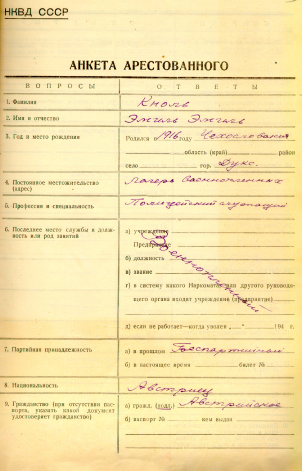 НКВД СССР
АНКЕТА АРЕСТОВАННОГО
ВОПРОСЫ ОТВЕТЫ
1. Фамилия Кноль
2. Имя и отчество Эмиль Эмиль
3. Год и место рождения Родился в 1916 году Чехословакия
область (край) район
село гор. Дукс.
4. Постоянное местожительство (адрес) лагерь военнопленных
5. Профессия и специальность Полицейский служащий
6. Последнее место службы и должность или род занятий
а) учреждение
Предприятие
б) должность
в) звание
Военнопленный
г) в систему какого Наркомата или другого руководящего органа входит учреждение (предприятие)
д) если не работает—когда уволен „ “ 194 г.
7. Партийная принадлежность а) в прошлом Беспартийный
б) в настоящее время билет №
8. Национальность Австриец
9. Гражданство (при отсутствии паспорта, указать какой документ удостоверяет гражданство) а) гражд. (подд.) Австрийское
б) паспорт № кем выдан